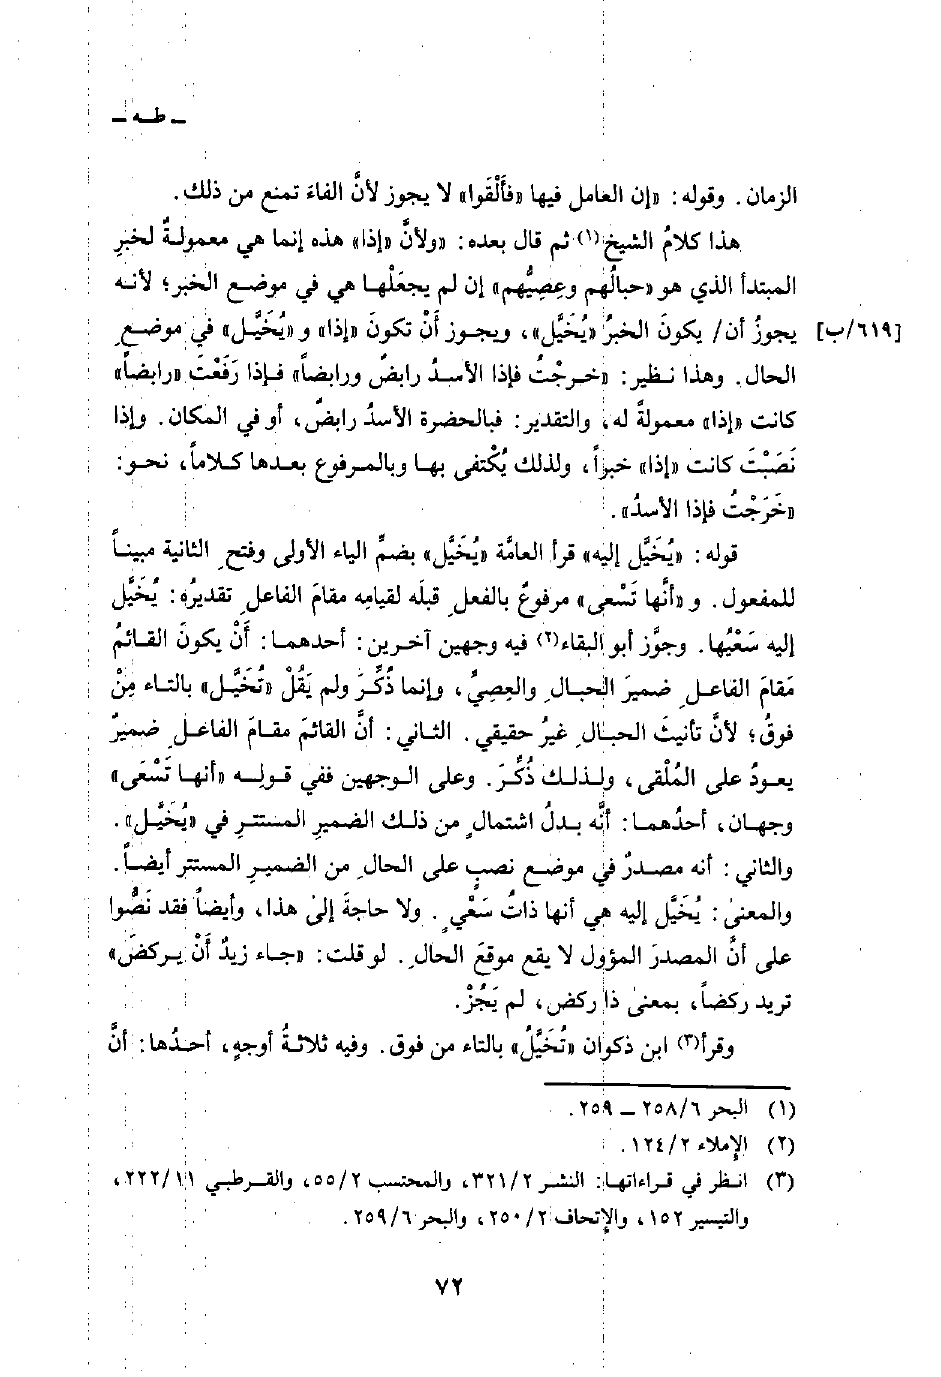 ـ طـه ـ
الزمان. وقوله: «إن العامل فيها «فأَلْقَوا» لا يجوز لأنَّ الفاءَ تمنع من ذلك.
هذا كلامُ الشيخ(١) ثم قال بعده: «ولأنَّ «إذا» هذه إنما هي معمولةٌ لخبرِ
المبتدأ الذي هو «حبالُهم وعِصِيُّهم» إن لم يجعَلْها هي في موضع الخبر؛ لأنه
[٦١٩/ب] يجوزُ أن/ يكونَ الخبرُ «يُخَيَّل»، ويجوز أَنْ تكونَ «إذا» و«يُخَيَّل» في موضعِ
الحال. وهذا نظير: «خرجْتُ فإذا الأسدُ رابضٌ ورابضاً» فإذا رَفَعْتَ «رابضاً»
كانت «إذا» معمولةً له، والتقدير: فبالحضرة الأسدُ رابضٌ، أو في المكان. وإذا
نَصَبْتَ كانت «إذا» خبراً، ولذلك يُكْتفى بها وبالمرفوع بعدها كلاماً، نحو:
«خَرَجْتُ فإذا الأسدُ».
قوله: «يُخَيَّل إليه» قرأ العامَّة «يُخَيَّل» بضمِّ الياء الأولى وفتحِ الثانية مبيناً
للمفعول. و«أنَّها تَسْعى» مرفوعٌ بالفعلِ قبلَه لقيامِه مقامَ الفاعلِ تقديرُه: يُخَيَّل
إليه سَعْيُها. وجوَّز أبو البقاء(٢) فيه وجهين آخرين: أحدهما: أَنْ يكونَ القائمُ
مَقامَ الفاعلِ ضميرَ الحبالِ والعِصِيِّ، وإنما ذُكِّرَ ولم يَقُلْ «تُخَيَّل» بالتاء مِنْ
فوقُ؛ لأنَّ تأنيثَ الحبالِ غيرُ حقيقي. الثاني: أنَّ القائمَ مقامَ الفاعلِ ضميرٌ
يعودُ على المُلْقى، ولذلك ذُكِّرَ. وعلى الوجهين ففي قوله «أنها تَسْعَى»
وجهان، أحدُهما: أنَّه بدلُ اشتمالٍ من ذلك الضميرِ المستترِ في «يُخَيَّل».
والثاني: أنه مصدرٌ في موضع نصبٍ على الحالِ من الضميرِ المستتر أيضاً.
والمعنىٰ: يُخَيَّل إليه هي أنها ذاتُ سَعْيٍ. ولا حاجةَ إلىٰ هذا، وأيضاً فقد نَصُّوا
على أنَّ المصدرَ المؤول لا يقع موقعَ الحالِ. لو قلت: «جاء زيدٌ أَنْ يركضَ»
تريد ركضاً، بمعنىٰ ذا ركض، لم يَجُزْ.
وقرأ(٣) ابن ذكوان «تُخَيَّلُ» بالتاء من فوق. وفيه ثلاثةُ أوجهٍ، أحدُها: أنَّ
(١) البحر ٦/٢٥٨ ــ ٢٥٩.
(٢) الإملاء ٢/١٢٤.
(٣) انظر في قراءاتها: النشر ٢/٣٢١، والمحتسب ٢/٥٥، والقرطبي ١١/٢٢٢،
والتيسير ١٥٢، والإتحاف ٢/٢٥٠، والبحر ٦/٢٥٩.
٧٢